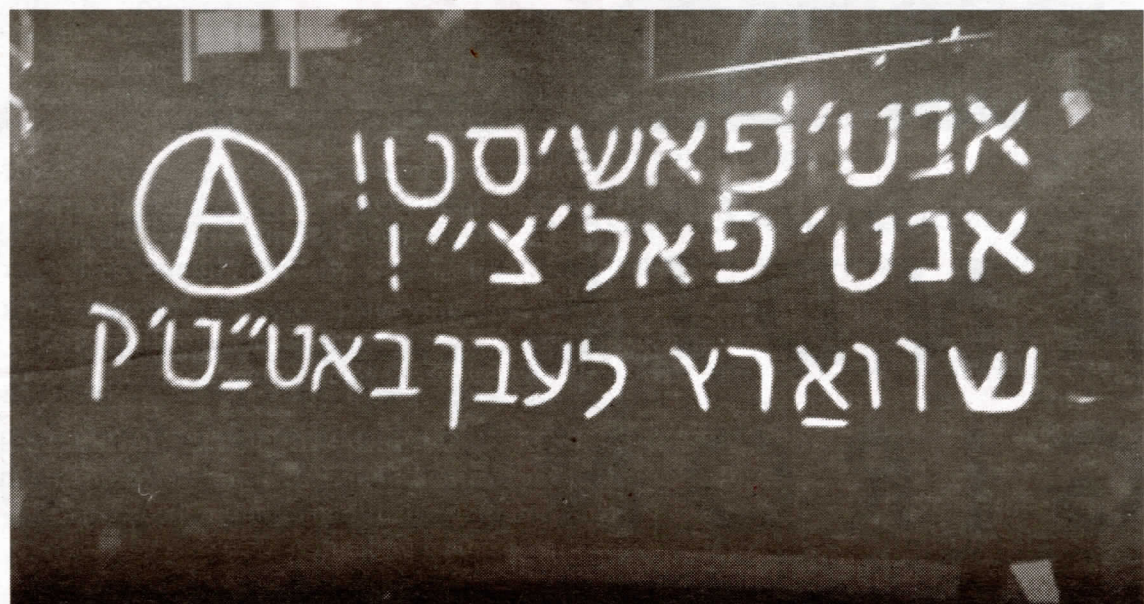 אנטיפֿאשיסט!
אנטיפֿאליציי!
Ⓐ
שוואַרץ לעבן באטייַטיק